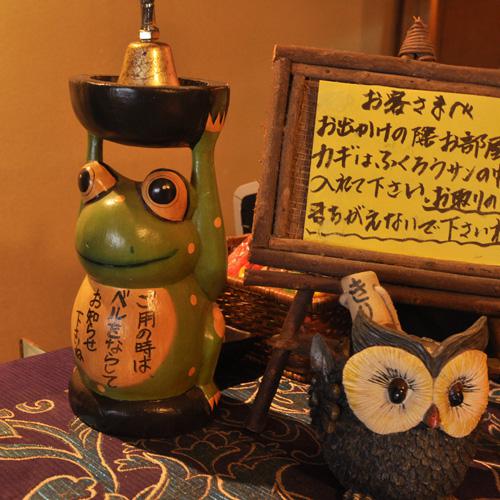 お客さまへ
お出かけの際お部屋
カギは、ふくろうサンの中
入れて下さい。お取りの
まちがえないで下さいね
きり
ご用の時は、
ベルをならして
お知らせ
下さいね